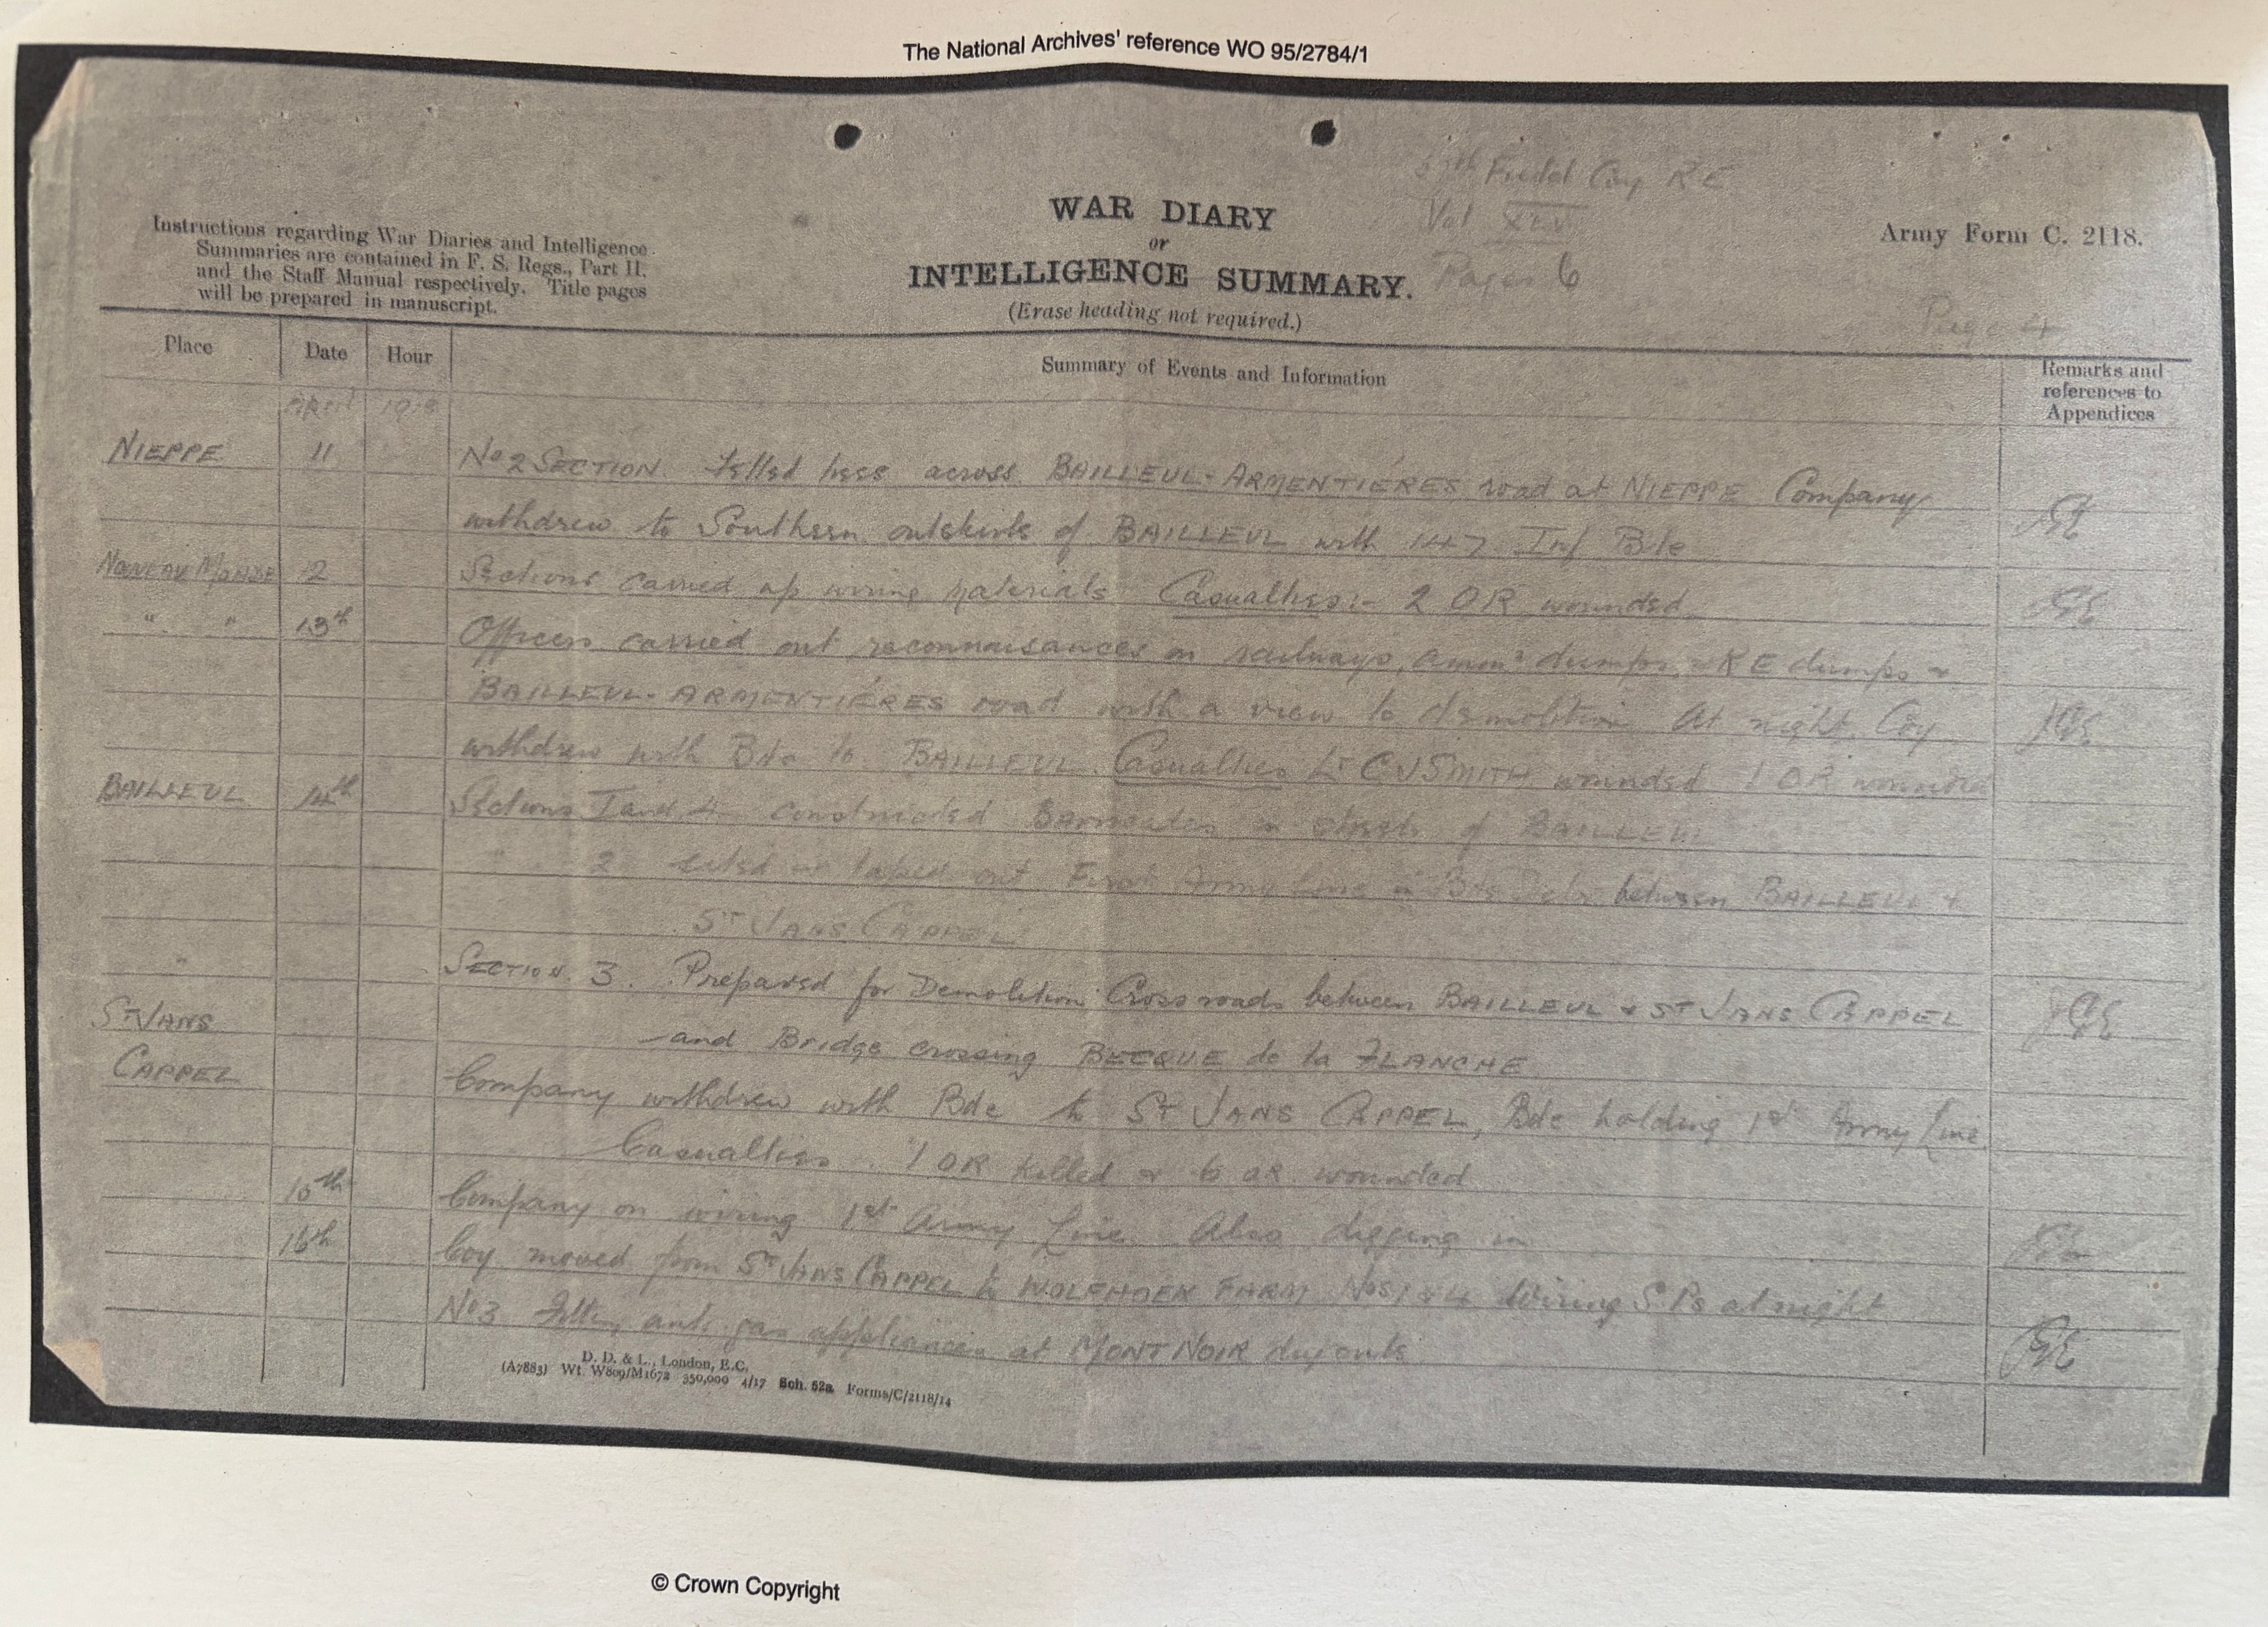 The National Archives' reference WO 95/2784/1
Field Coy R E
Vol
WAR DIARY
or
INTELLIGENCE SUMMARY.
(Erase heading not required.)
Pages 6
Army Form C. 2118.
Page 4
Instructions regarding War Diaries and Intelligence
Summaries are contained in F. S. Regs., Part II.
and the Staff Manual respectively. Title pages
will be prepared in manuscript.
Place Date Hour Summary of Events and Information Remarks and references to Appendices
April 1918
NIEPPE 11 No 2 SECTION. Felled trees across BAILLEUL-ARMENTIÉRES road at NIEPPE Company
withdrew to Southern outskirts of BAILLEUL with 147 Inf Bde
12 Sections carried up wiring materials Casualties:- 2 OR wounded
" " 13th Officers carried out reconnaisances on railways, ammn dumps, RE dumps &
BAILLEUL-ARMENTIÉRES road with a view to demolition At night Coy
withdrew with Bde to BAILLEUL. Casualties Lt C V SMITH wounded 1 OR wounded
BAILLEUL 14th Sections 1 and 4 constructed Barricades in streets of BAILLEUL
" 2 taped out First Army Line in Bde between BAILLEUL &
ST JANS CAPPEL
" SECTION. 3. Prepared for Demolition Cross roads between BAILLEUL & ST JANS CAPPEL
ST JANS and Bridge crossing BECQUE de la FLANCHE
CAPPEL Company withdrew with Bde to ST JANS CAPPEL, Bde holding 1st Army Line
Casualties. 1 OR killed & 6 OR wounded
15th Company on wiring 1st Army Line. Also digging in
16th Coy moved from ST JANS CAPPEL to WOLFHOEK FARM Nos 1 & 4 Wiring S Ps at night
No 3 Fitting anti gas appliances at MONT NOIR dugouts
D. D. & L., London, E.C.
(A7883) Wt. W809/M1672 350,000 4/17 Sch. 52a Forms/C/2118/14
© Crown Copyright